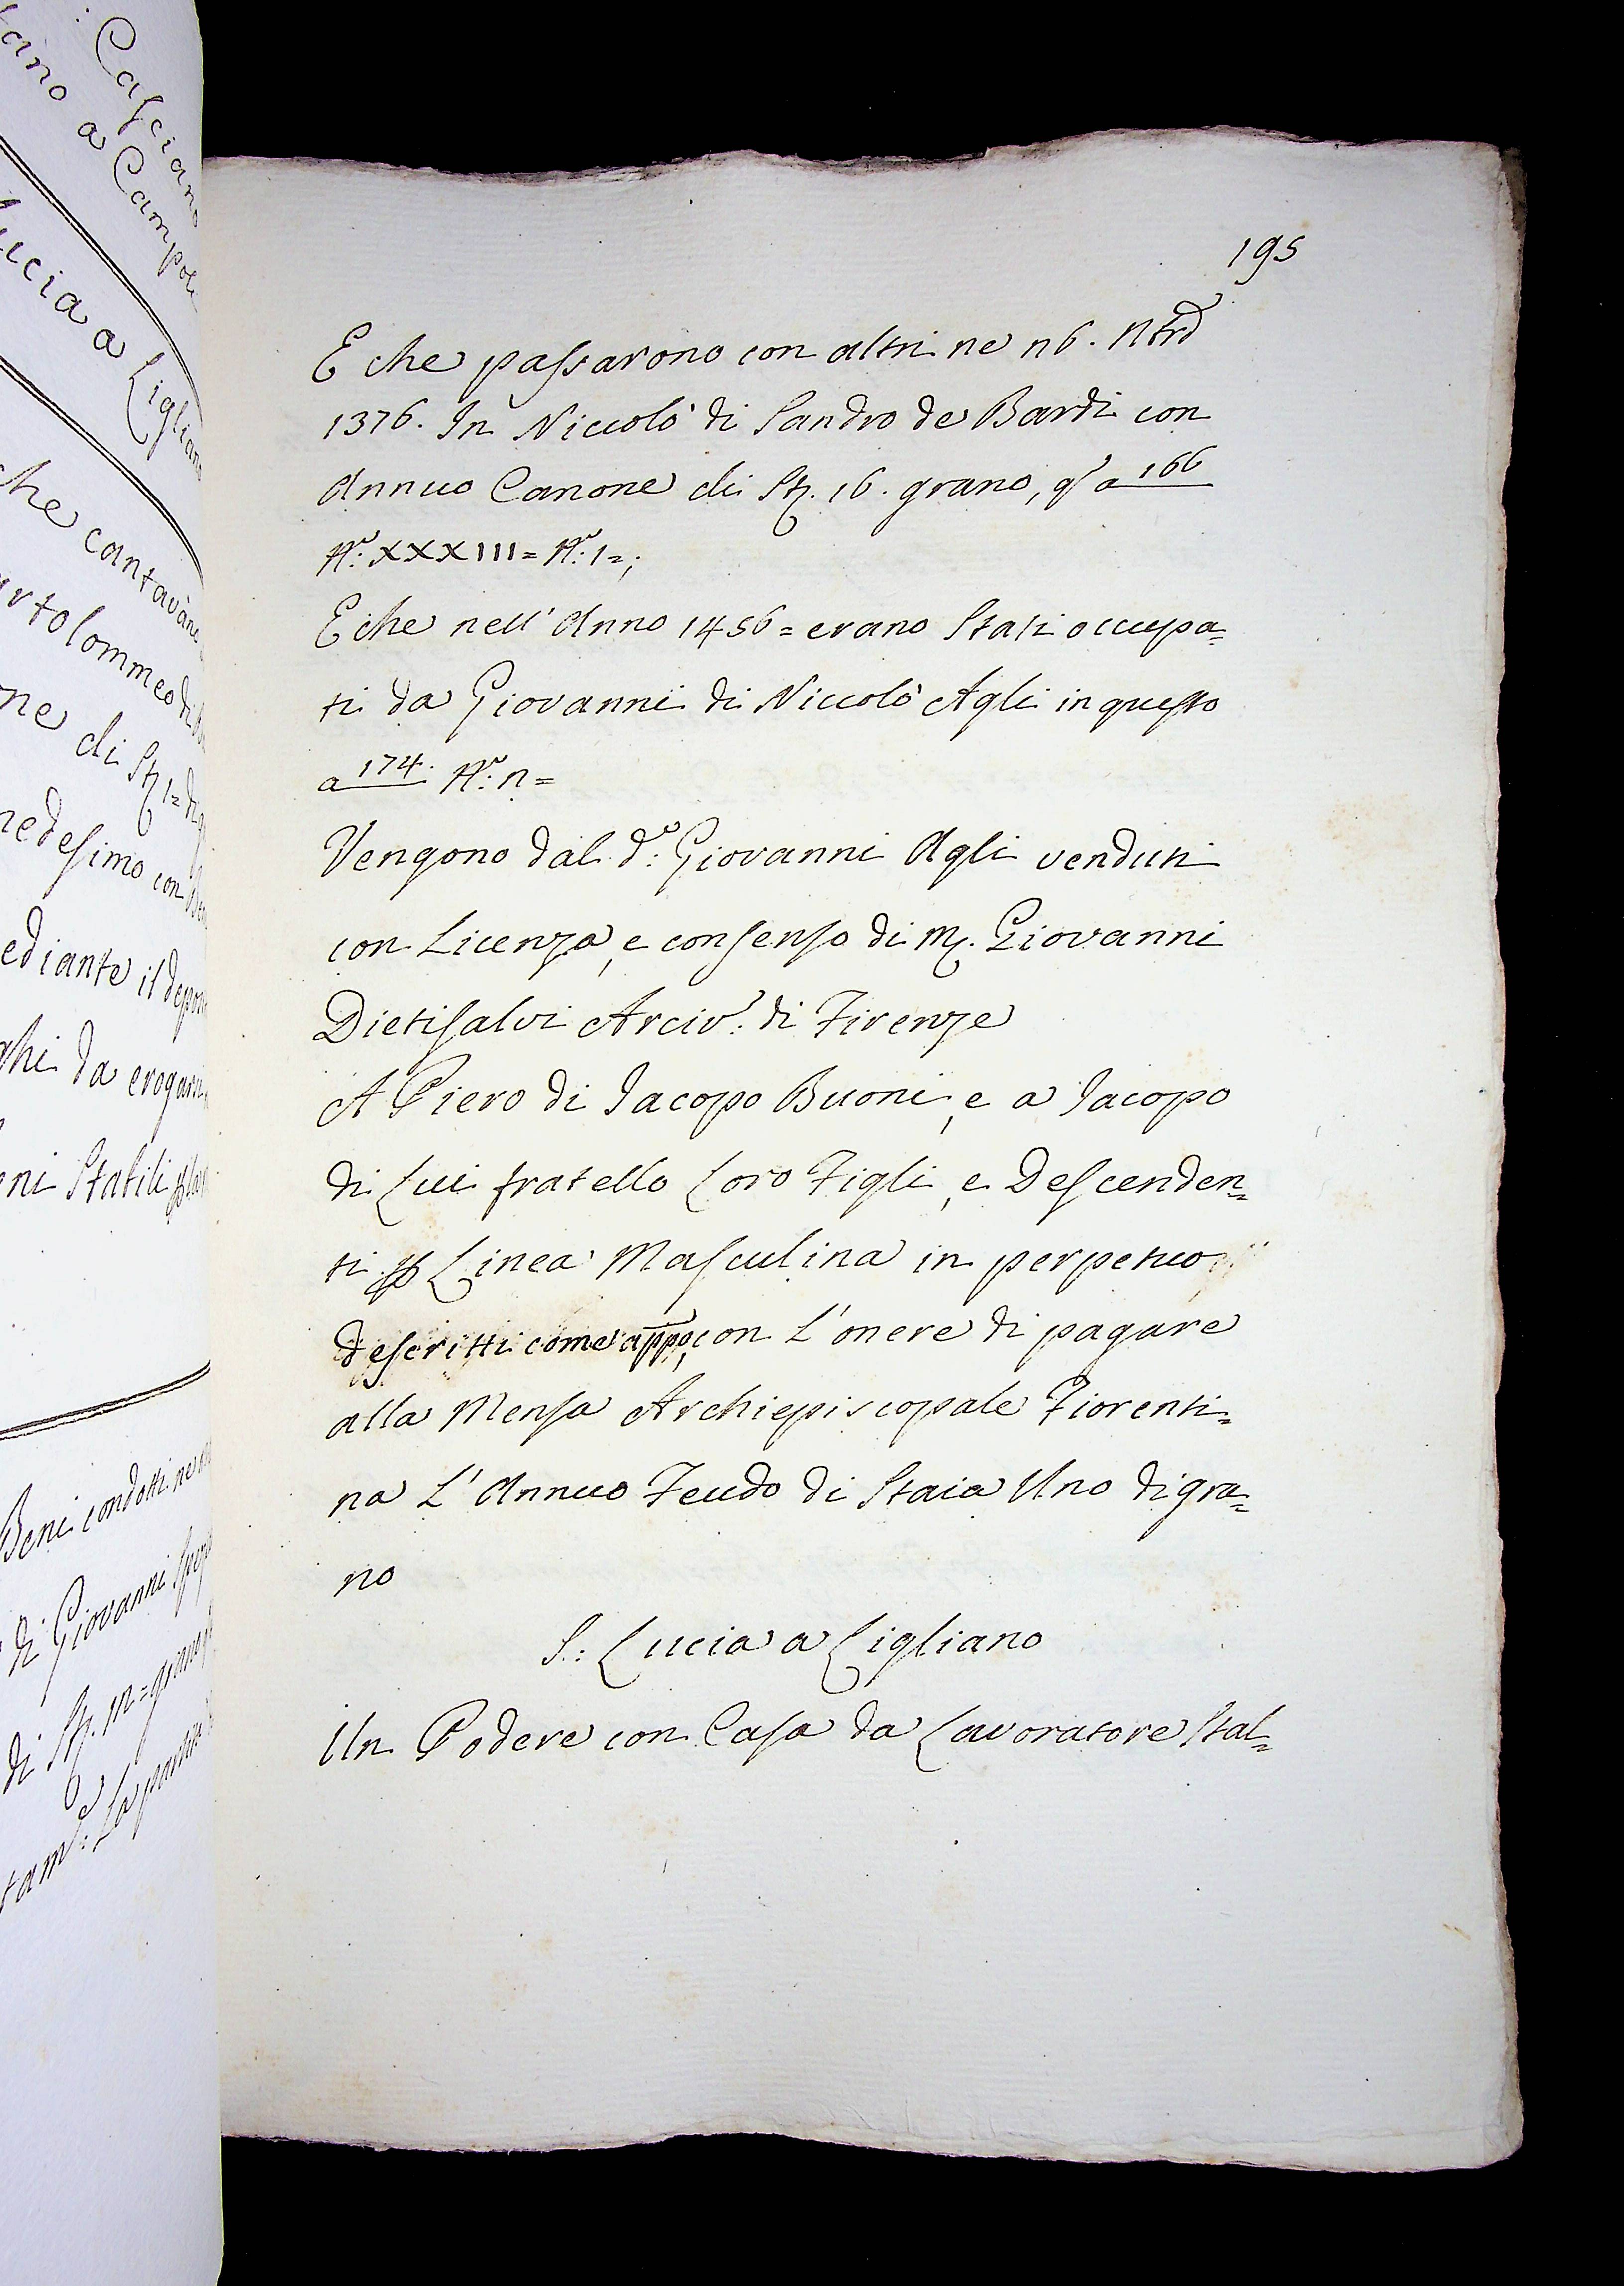 Casciano
tano a Campoli
Lucia a Ligliano
che cantavano
artolommeo di
ne di St. 1=
medesimo con
ediante il
ghi da erogarsi
ni Stabili
Beni condotti ne
di Giovanni
di St. 12= grano
195
E che passarono con altri ne 26. 9brẽ
1376. In Niccolò di Sandro de Bardi con
Annuo Canone di St. 16. grano, qº a 166
Nº: XXXIII= Nº: 1=;
E che nell' Anno 1456= erano Stati occupa=
ti da Giovanni di Niccolò Agli in questo
a 174. Nº: 2=
Vengono dal dº: Giovanni Agli venduti
con Licenza, e consenso di M. Giovanni
Dietisalvi Arcivº: di Firenze
A Piero di Jacopo Buoni, e a Jacopo
di Lui fratello Loro Figli, e Descenden=
ti ꝑ Linea Masculina in perpetuo
descritti come appº, con L'onere di pagare
alla Mensa Archiepiscopale Fiorenti=
na L'Annuo Feudo di Staia Uno di gra=
no
S.: Lucia a Ligliano
Un Podere con Casa da Lavoratore Stal=